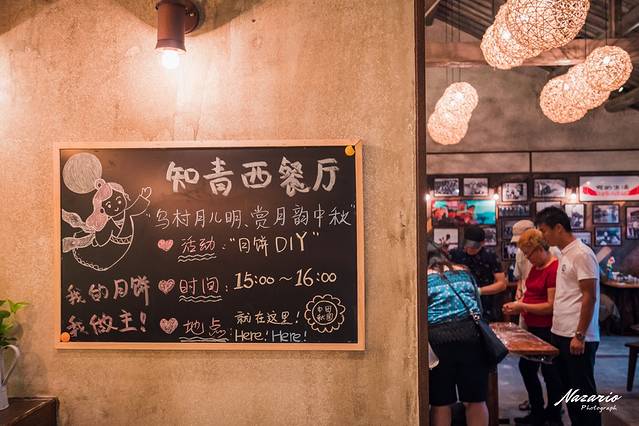 知青西餐厅
"乌村月儿明、赏月韵中秋"
活动:"月饼DIY"
时间:15:00~16:00
地点:就在这里!
Here! Here!
我的月饼
我做主!
中国
秋园
Nazario
Photograph